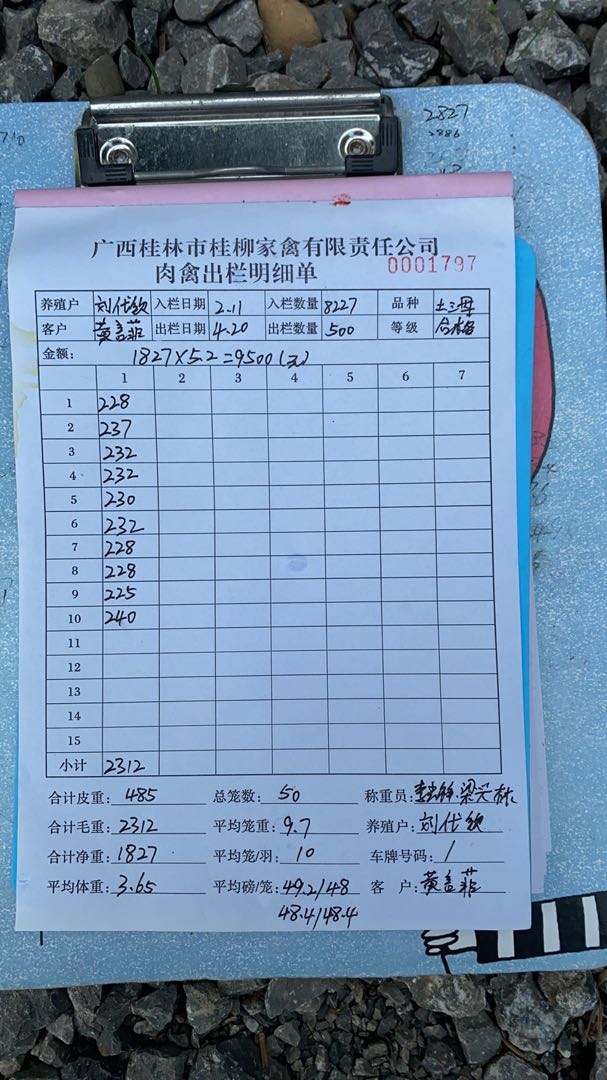 2827
2886
广西桂林市桂柳家禽有限责任公司
肉禽出栏明细单
0001797
养殖户 刘代钦 入栏日期 2.11 入栏数量 8227 品种 土三母
客户 黄孟菲 出栏日期 4.20 出栏数量 500 等级 合格
金额: 1827×5.2=9500(元)
1 2 3 4 5 6 7
1 228
2 237
3 232
4 232
5 230
6 232
7 228
8 228
9 225
10 240
11
12
13
14
15
小计 2312
合计皮重: 485 总笼数: 50 称重员: 梁兴林
合计毛重: 2312 平均笼重: 9.7 养殖户: 刘代钦
合计净重: 1827 平均笼/羽: 10 车牌号码: /
平均体重: 3.65 平均磅/笼: 49.2/48 客 户: 黄孟菲
48.4/48.4